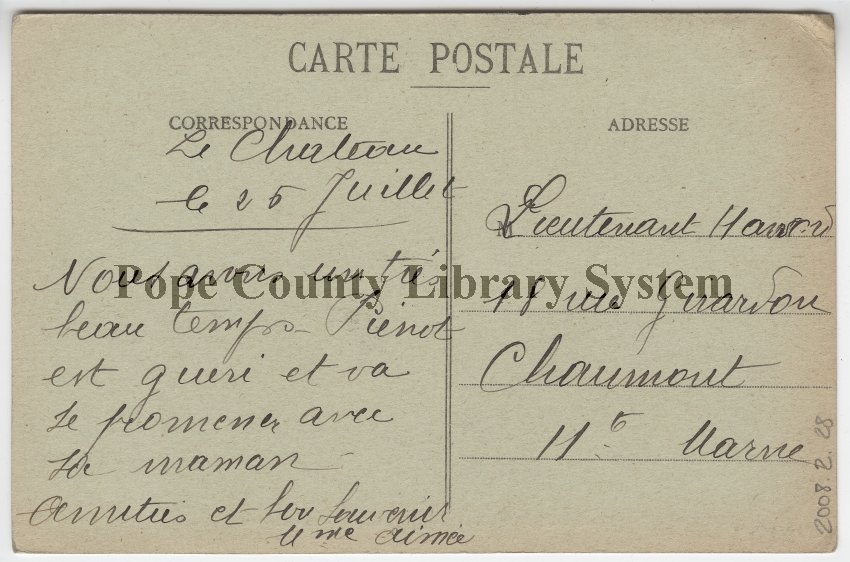 CARTE POSTALE
CORRESPONDANCE
Le Chateau
le 25 Juillet
Nous avons un très
beau temps - Pierrot
est guéri et va
se promener avec
sa maman -
Amitiés et bon souvenir
Aimée
ADRESSE
Lieutenant
18 rue Girardon
Chaumont
Hte Marne
Pope County Library System
2008.2.28